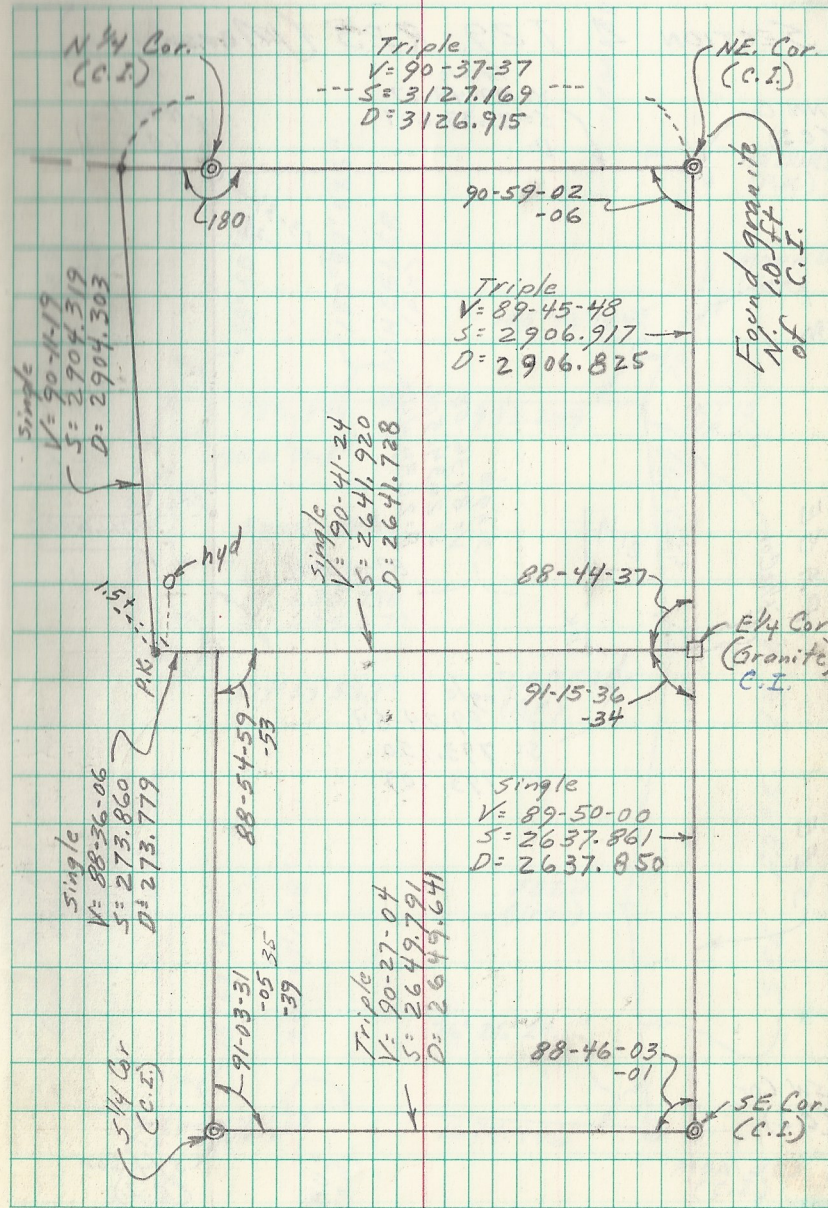 N 1/4 Cor.
(C.I.)
Triple
V= 90-37-37
--- S= 3127.169 ---
D= 3126.915
NE. Cor.
(C.I.)
180
90-59-02
-06
Found granite
N. 1.0 ft
of C.I.
Triple
V= 89-45-48
S= 2906.917
D= 2906.825
Single
V= 90-11-19
S= 2904.319
D= 2904.303
Single
V= 90-41-24
S= 2641.920
D= 2641.728
hyd
1.5±
P.K.
88-44-37
E 1/4 Cor.
(Granite)
C.I.
91-15-36
-34
88-54-59
-53
Single
V= 88-36-06
S= 273.860
D= 273.779
Single
V= 89-50-00
S= 2637.861
D= 2637.850
91-03-31
-05 35
-39
Triple
V= 90-27-04
S= 2649.791
D= 2649.641
88-46-03
-01
S 1/4 Cor
(C.I.)
SE. Cor.
(C.I.)